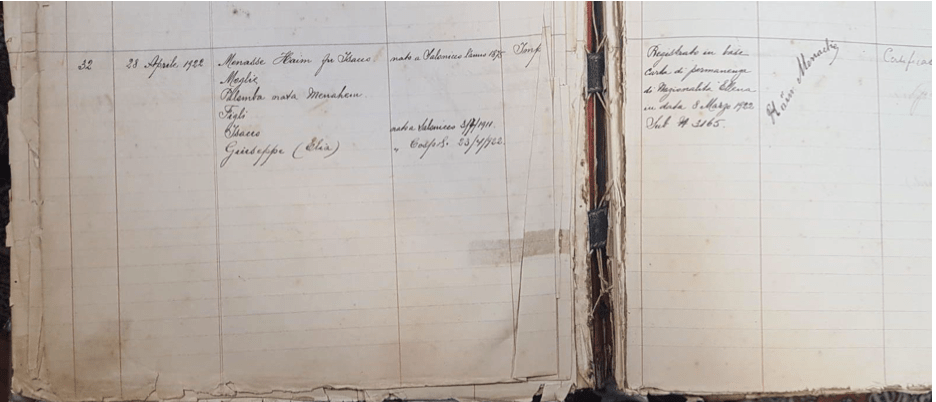 32 28 Aprile 1922 Menasse Haim fu Isacco nato a Salonicco l'anno 1875 Imp
Moglie
Palomba nata Menahem.
Figli
Isacco nato a Salonicco 1911.
Giuseppe (Elia) " 23/4/922.
Registrato in base
Carta di permanenza
di Nazionalità Ellena
in data 8 Marzo 1922
Sub N 3165.
Haim Menache
Certificat